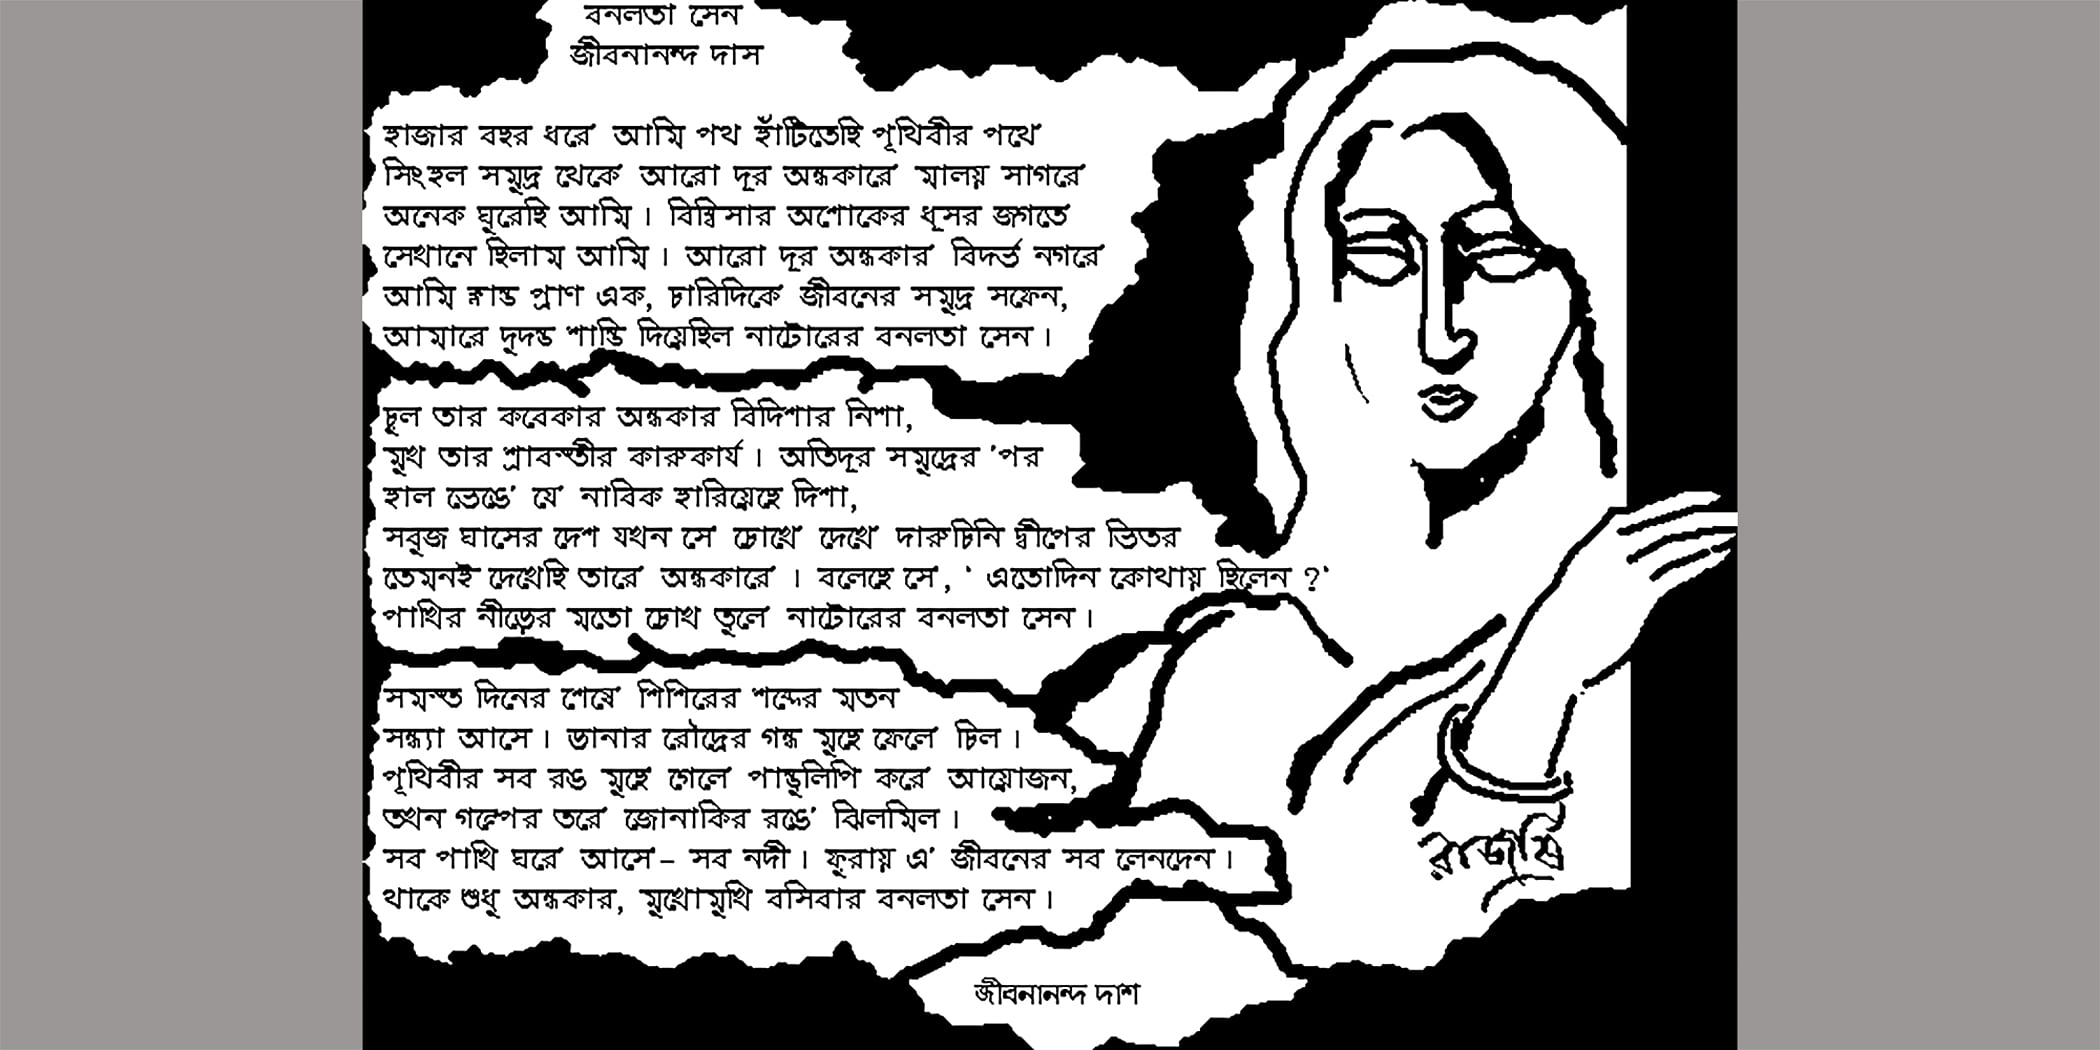 বনলতা সেন
জীবনানন্দ দাস
হাজার বছর ধরে আমি পথ হাঁটিতেছি পৃথিবীর পথে
সিংহল সমুদ্র থেকে আরো দূর অন্ধকারে মালয় সাগরে
অনেক ঘুরেছি আমি । বিম্বিসার অশোকের ধূসর জগতে
সেখানে ছিলাম আমি । আরো দূর অন্ধকার বিদর্ভ নগরে
আমি ক্লান্ত প্রাণ এক, চারিদিকে জীবনের সমুদ্র সফেন,
আমারে দুদন্ড শান্তি দিয়েছিল নাটোরের বনলতা সেন ।
চুল তার কবেকার অন্ধকার বিদিশার নিশা,
মুখ তার শ্রাবস্তীর কারুকার্য । অতিদূর সমুদ্রের 'পর
হাল ভেঙে যে নাবিক হারিয়েছে দিশা,
সবুজ ঘাসের দেশ যখন সে চোখে দেখে দারুচিনি দ্বীপের ভিতর
তেমনই দেখেছি তারে অন্ধকারে । বলেছে সে, ' এতোদিন কোথায় ছিলেন ?'
পাখির নীড়ের মতো চোখ তুলে নাটোরের বনলতা সেন ।
সমস্ত দিনের শেষে শিশিরের শব্দের মতন
সন্ধ্যা আসে । ডানার রৌদ্রের গন্ধ মুছে ফেলে চিল ।
পৃথিবীর সব রঙ মুছে গেলে পান্ডুলিপি করে আয়োজন,
তখন গল্পের তরে জোনাকির রঙে ঝিলমিল ।
সব পাখি ঘরে আসে– সব নদী । ফুরায় এ জীবনের সব লেনদেন ।
থাকে শুধু অন্ধকার, মুখোমুখি বসিবার বনলতা সেন ।
রাজর্ষি
জীবনানন্দ দাশ